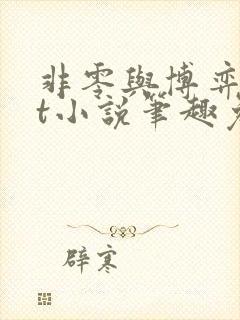 非零與博弈
t小說筆趣
辟寒